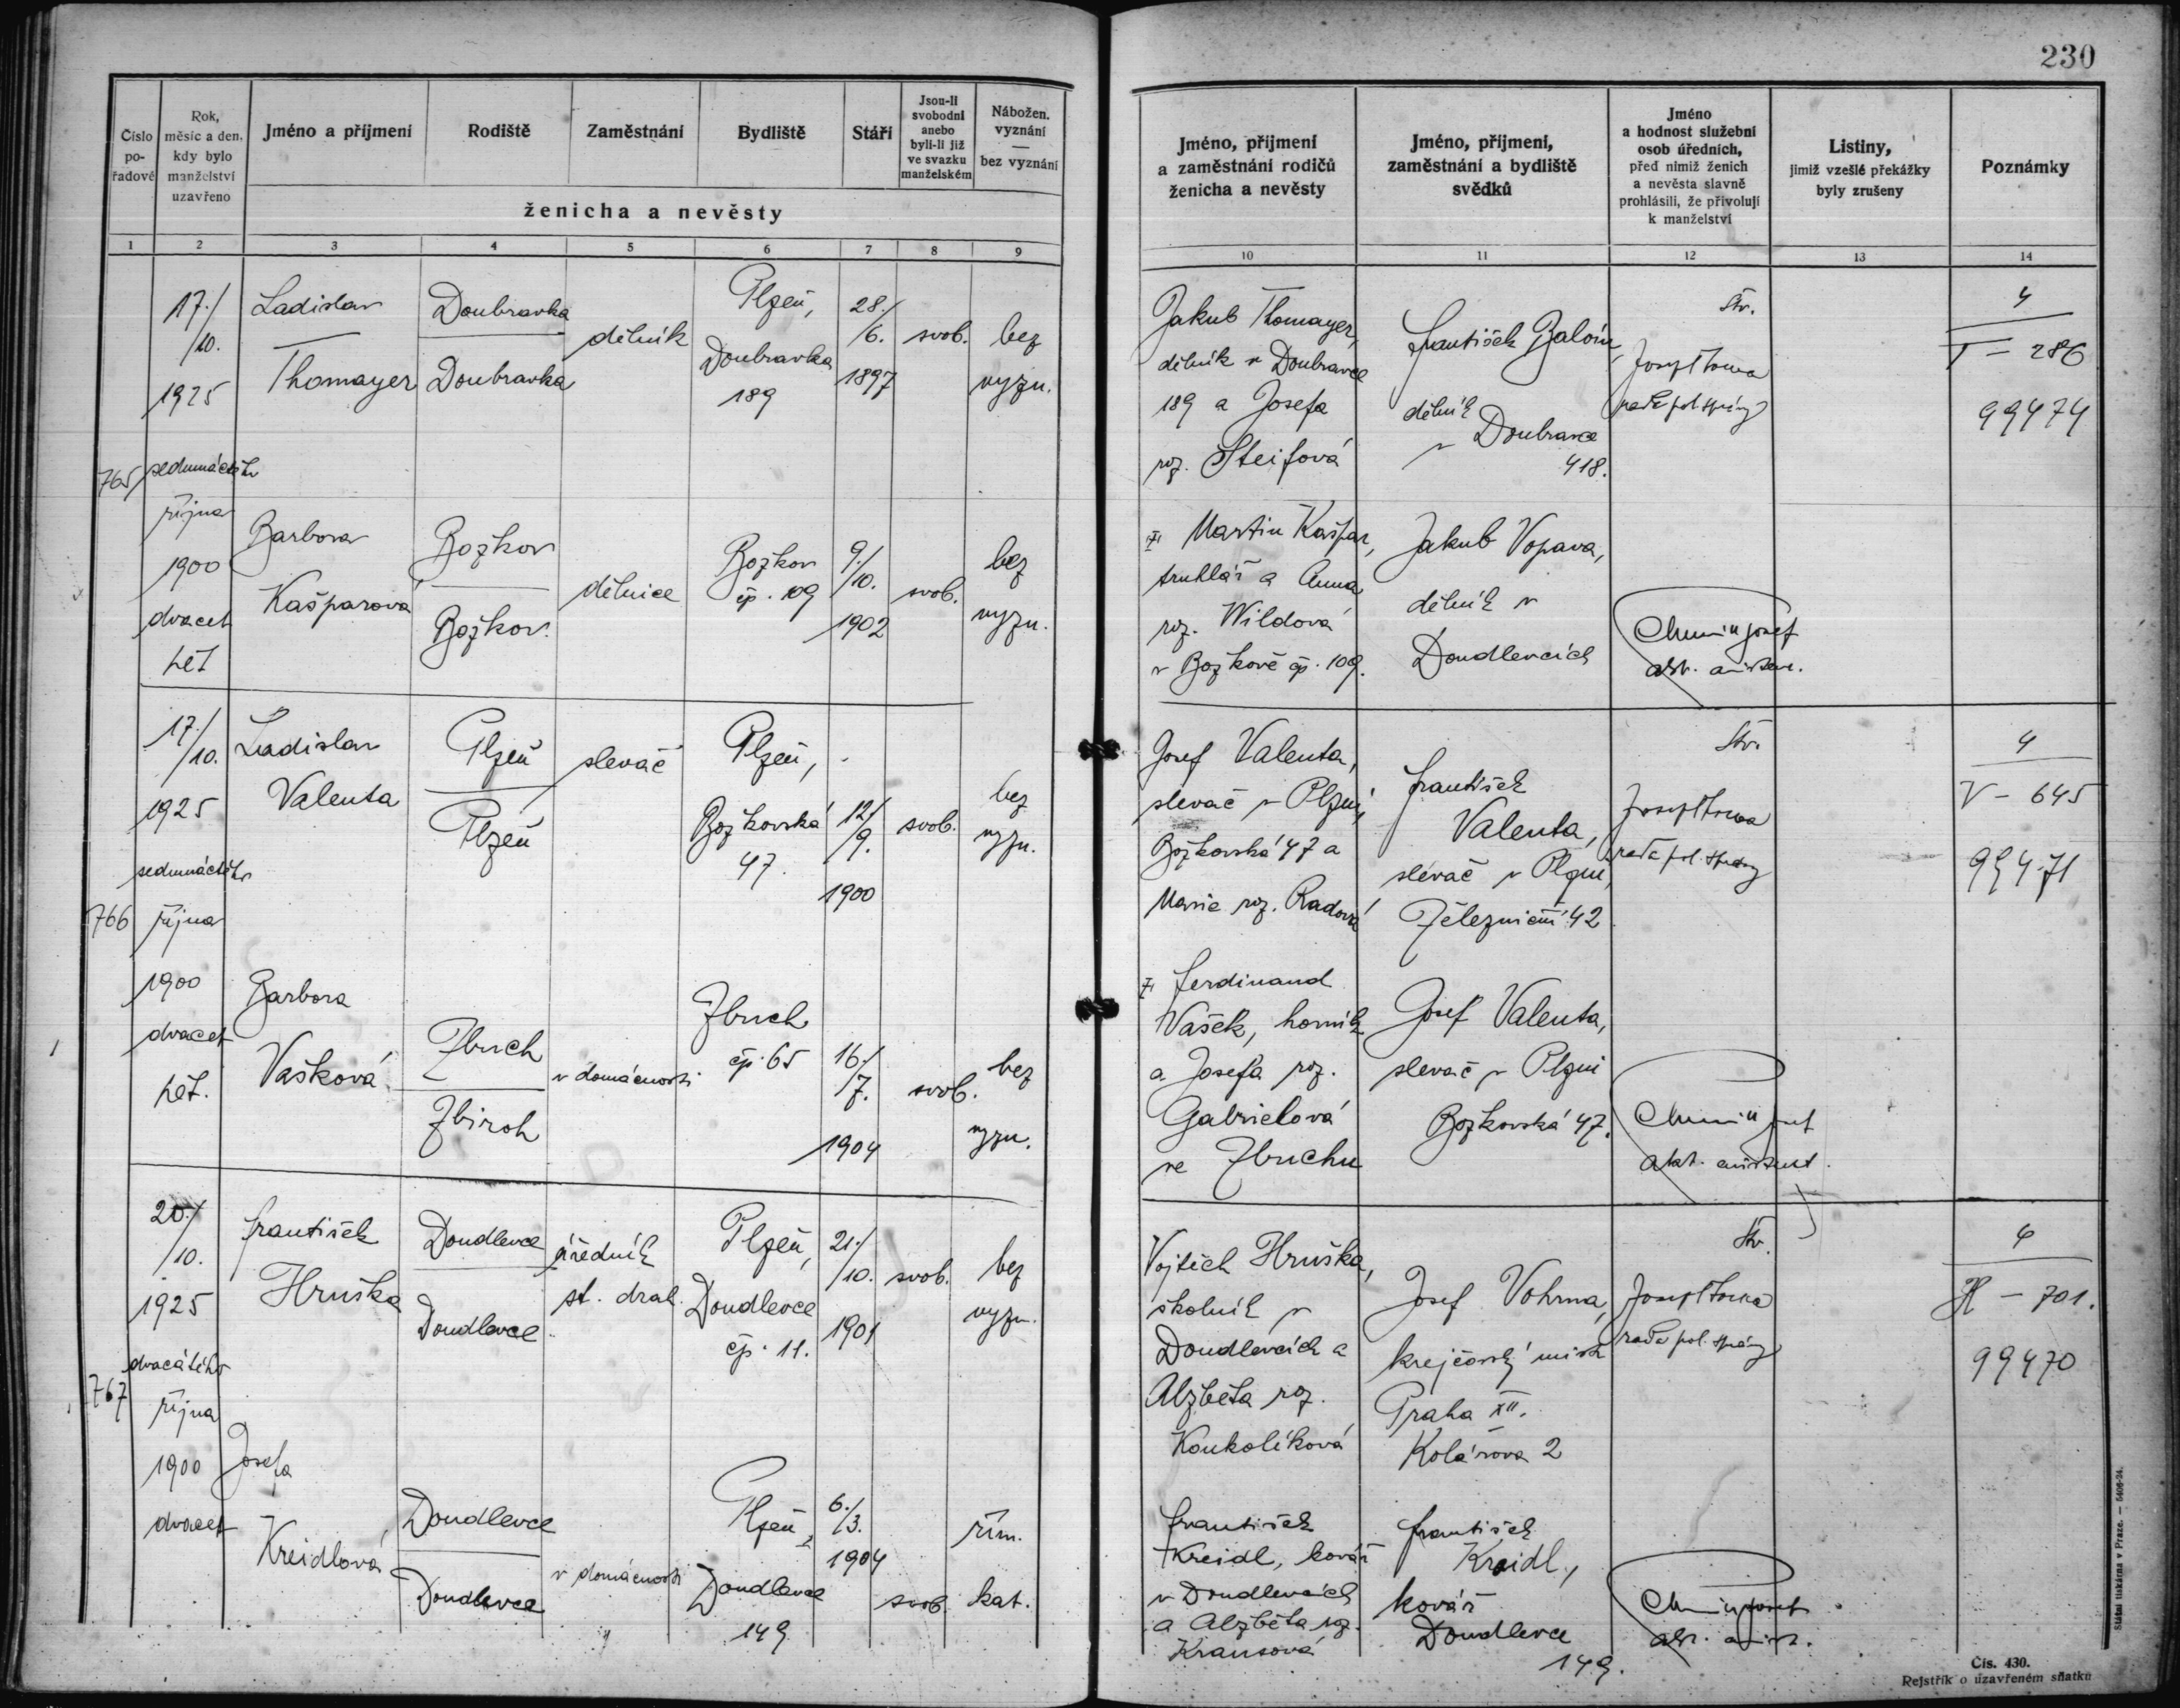 230
Číslo po-řadové
Rok, měsíc a den, kdy bylo manželství uzavřeno
Jméno a příjmení
Rodiště
Zaměstnání
Bydliště
Stáří
Jsou-li svobodni anebo byli-li již ve svazku manželském
Nábožen. vyznání — bez vyznání
ženicha a nevěsty
Jméno, příjmení a zaměstnání rodičů ženicha a nevěsty
Jméno, příjmení, zaměstnání a bydliště svědků
Jméno a hodnost služební osob úředních, před nimiž ženich a nevěsta slavně prohlásili, že přivolují k manželství
Listiny, jimiž vzešlé překážky byly zrušeny
Poznámky
1 2 3 4 5 6 7 8 9 10 11 12 13 14
765
17./10.
1925
sedmnáctého
října
1900
dvacet
pět
Ladislav
Thomayer
Doubravka
Doubravka
dělník
Plzeň,
Doubravka
189
28./6.
1897
svob.
bez
vyzn.
Jakub Thomayer,
dělník v Doubravce
189 a Josefa
roz. Steifová
František Balóun,
dělník
v Doubravce
418.
Stv.
Josef
rada pol. správy
4
T – 286
99474
Barbora
Kašparová
Bozkov
Bozkov.
dělnice
Bozkov
čp. 109
9./10.
1902
svob.
bez
vyzn.
Martin Kašpar,
truhlář a Anna
roz. Wildová
v Bozkově čp. 109.
Jakub Vopava,
dělník v
Doudlevcích
Josef
766
17./10.
1925
sedmnáctého
října
1900
dvacet
pět.
Ladislav
Valenta
Plzeň
Plzeň
slevač
Plzeň,
Bozkovská
47.
12/9.
1900
svob.
bez
vyzn.
Josef Valenta,
slevač v Plzni,
Bozkovská 47 a
Marie roz. Radová
František
Valenta,
slévač v Plzni,
Železniční 42
Stv.
Josef
rada pol. správy
4
V – 645
99471
Barbora
Vašková
Zbuch
Zbiroh
v domácnosti
Zbuch
čp. 65
16./7.
1904
svob.
bez
vyzn.
Ferdinand
Vašek, horník
a Josefa roz.
Gabrielová
ve Zbuchu
Josef Valenta,
slevač v Plzni
Bozkovská 47.
767
20./10.
1925
dvacátého
října
1900
dvacet
František
Hruška
Doudlevce
Doudlevce
úředník
st. drah.
Plzeň,
Doudlevce
čp. 11.
21./10.
1901
svob.
bez
vyzn.
Vojtěch Hruška,
školník v
Doudlevcích a
Alžběta roz.
Koukolíková
Josef Vohrna,
krejčovský mistr
Praha XII.
Kolárova 2
Stv.
Josef
rada pol. správy
4
H – 701.
99470
Josefa
Kreidlová
Doudlevce
Doudlevce
v domácnosti
Plzeň,
Doudlevce
149
6./3.
1904
svob.
řím.
kat.
František
Kreidl, kovář
v Doudlevcích
a Alžběta roz.
Krausová
František
Kreidl,
kovář
Doudlevce
149.
Státní tiskárna v Praze. — 5406-24.
Čís. 430.
Rejstřík o uzavřeném sňatku